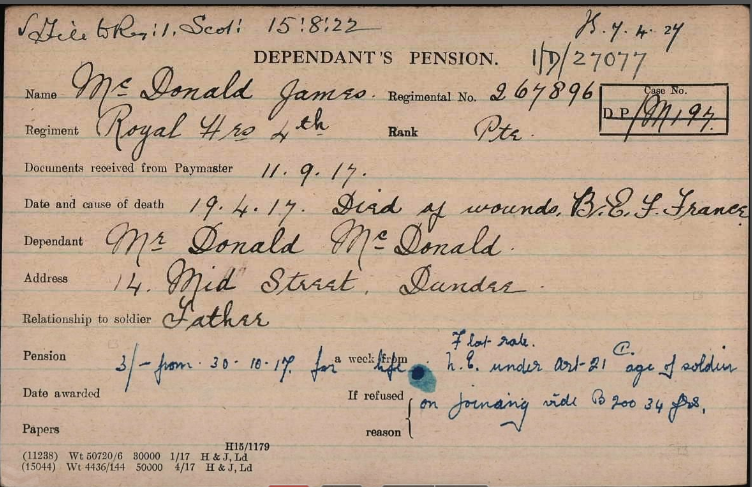 File to Reg: 1. Scot: 15:8:22
7.4.27
DEPENDANT'S PENSION. 1/D/27077
Name Mc Donald James. Regimental No. 267896 Case No.
Regiment Royal Hrs 4th Rank Pte. D P/M197.
Documents received from Paymaster 11.9.17.
Date and cause of death 19.4.17. Died of wounds. B.E.F. France
Dependant Mr Donald McDonald.
Address 14. Mid Street. Dundee
Relationship to soldier Father
Flat rate.
Pension 3/- from 30-10-17. for a week from life. N.E. under Art-21 C. age of soldier
Date awarded If refused on joining vide B 200 34 yrs.
Papers reason
H15/1179
(11238) Wt 50720/6 30000 1/17 H & J, Ld
(15044) Wt 4436/144 50000 4/17 H & J, Ld